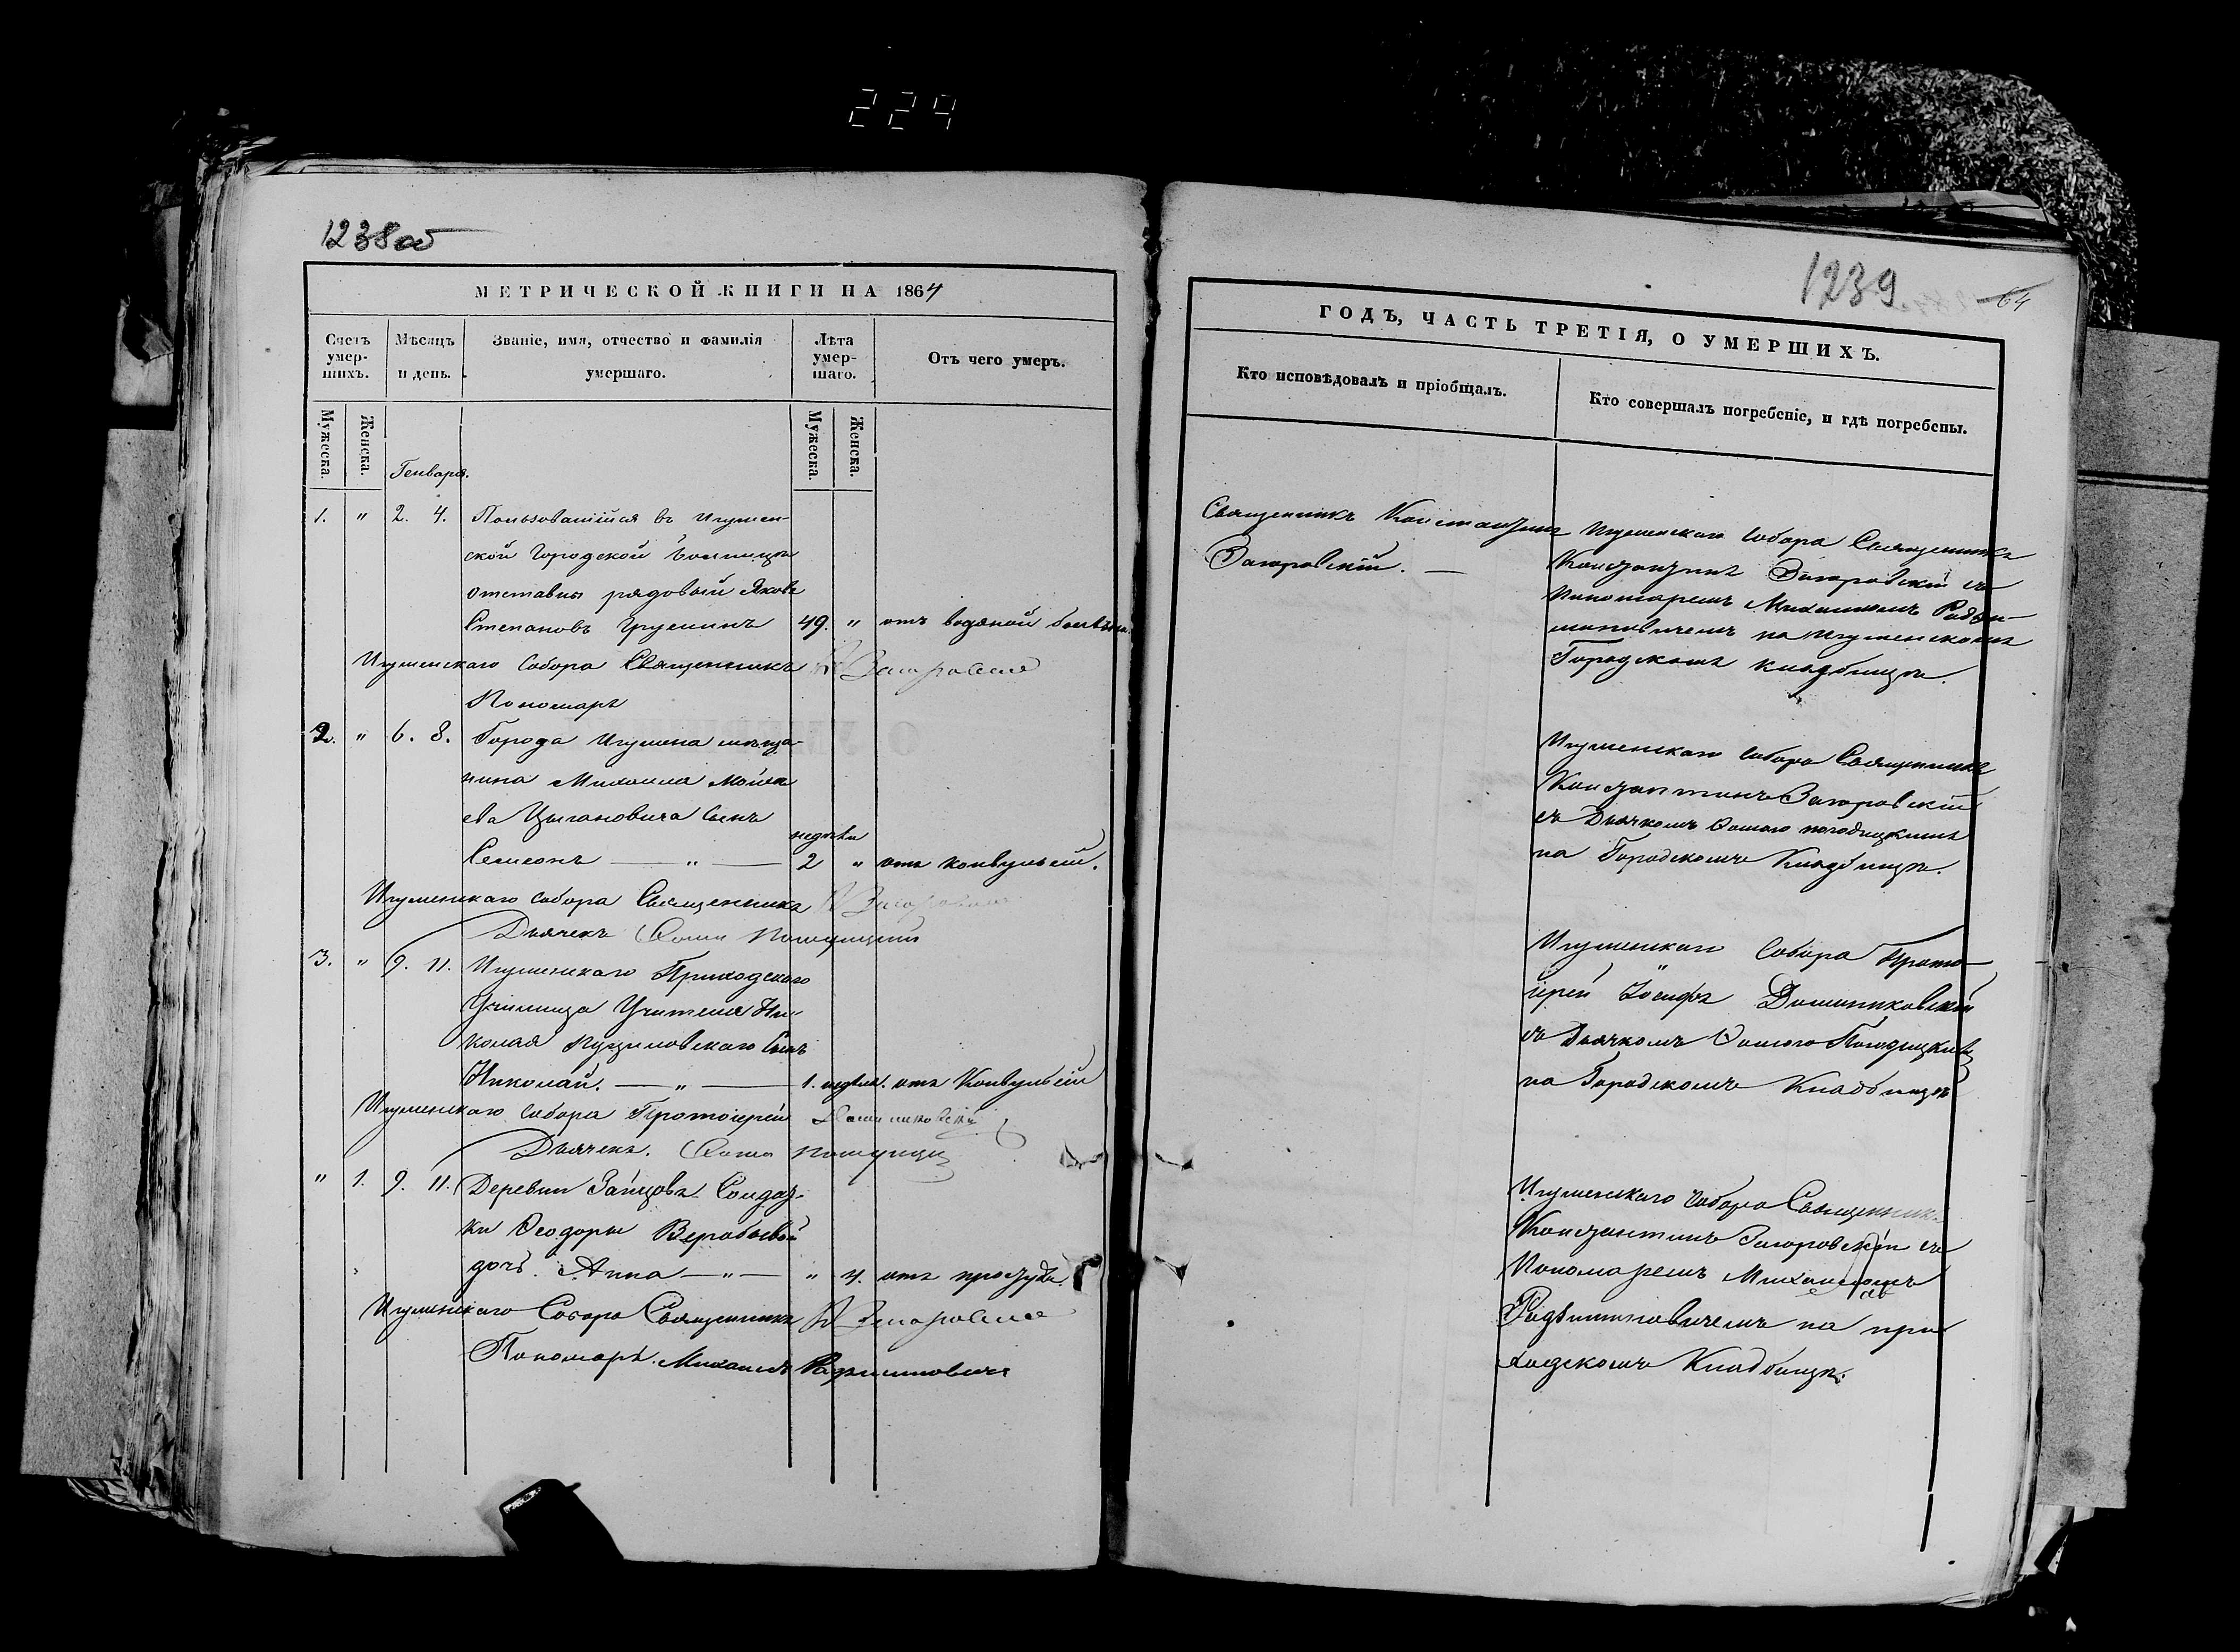 224
1238 об
МЕТРИЧЕСКОЙ КНИГИ НА 1864
Счетъ умер-шихъ.
Мѣсяцъ и день.
Званіе, имя, отчество и фамилія умершаго.
Лѣта умер-шаго.
Отъ чего умеръ.
Мужеска.
Женска.
Мужеска.
Женска.
Генваря.
1. " 2. 4. Пользовавшійся въ Игумен-
ской Городской больницѣ
отставны рядовый Яковъ
Степановъ 49. " отъ водяной болѣзни.
Игуменскаго Собора Священникъ К Загоровскій
Пономарь
2. " 6. 8. Города Игумена мѣща-
нина Михаила Мойсѣ
ева Цыгановича сынъ
недѣли
Семеонъ — " — 2 " отъ конвульсій.
Игуменскаго Собора Священникъ К Загоровскій
Дьячекъ Ѳома
3. " 9. 11. Игуменскаго Приходскаго
Училища Учителя Ни-
колая сынъ
Николай. — " — 1. недѣля. отъ Конвульсій
Игуменскаго Собора Протоіерей
Дьячекъ. Ѳома
" 1. 9. 11. Деревни Зайцовъ Солдат-
ки Ѳеодоры Веробьевой
дочь. Анна — " — " 4. отъ простуды.
Игуменскаго Собора Священникъ К Загоровскій
Пономарь. Михаилъ
1239
64
ГОДЪ, ЧАСТЬ ТРЕТІЯ, О УМЕРШИХЪ.
Кто исповѣдовалъ и пріобщалъ.
Кто совершалъ погребеніе, и гдѣ погребены.
Священникъ Константинъ
Загоровскій. —
Игуменскаго Собора Священникъ
Константинъ Загоровскій съ
Пономаремъ Михаиломъ
на Игуменскомъ
Городскомъ кладбищѣ.
Игуменскаго Собора Священникъ
Константинъ Загоровскій
съ Дьячкомъ Ѳомою
на Городскомъ Кладбищѣ.
Игуменскаго Собора Прото-
іерей Іосифъ
съ Дьячкомъ Ѳомою
на Городскомъ Кладбищѣ
Игуменскаго Собора Священникъ
Константинъ Загоровскій съ
Пономаремъ Михаиломъ
на при
ходскомъ Кладбищѣ.